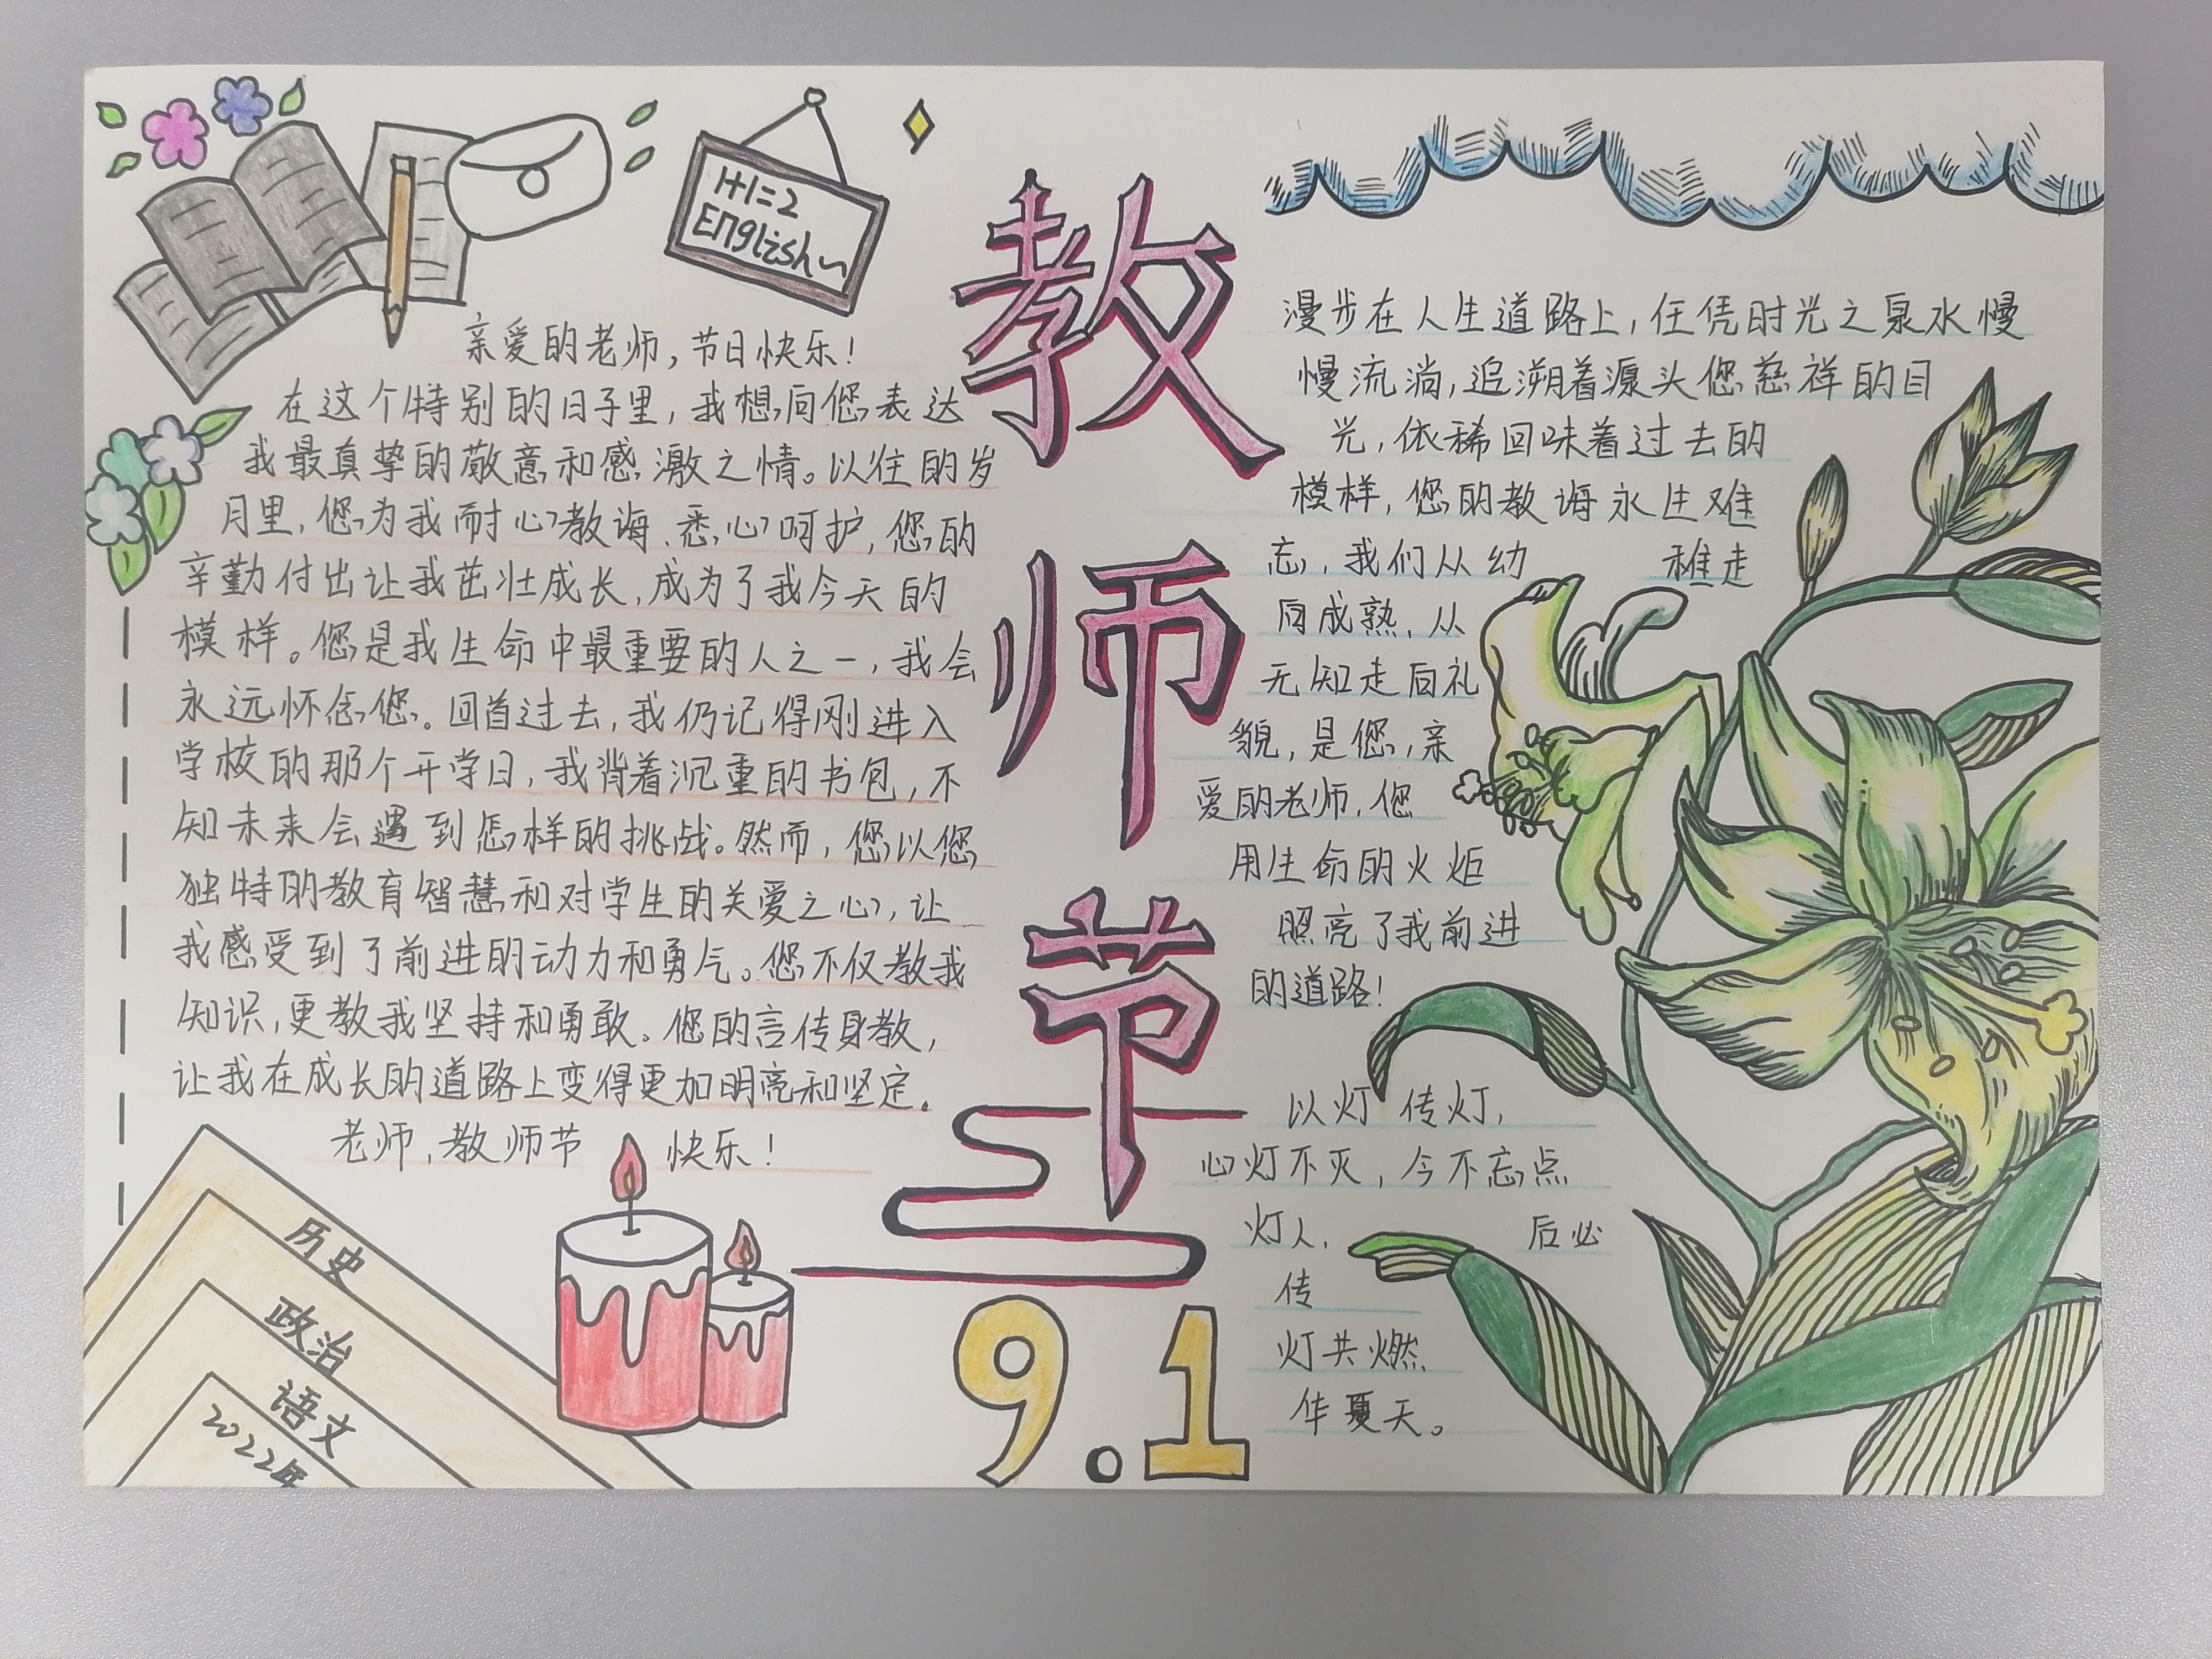 1+1=2
English~
亲爱的老师,节日快乐!
在这个特别的日子里,我想向您表达
我最真挚的敬意和感激之情。以往的岁
月里,您为我耐心教诲、悉心呵护,您的
辛勤付出让我茁壮成长,成为了我今天的
模样。您是我生命中最重要的人之一,我会
永远怀念您。回首过去,我仍记得刚进入
学校的那个开学日,我背着沉重的书包,不
知未来会遇到怎样的挑战。然而,您以您
独特的教育智慧和对学生的关爱之心,让
我感受到了前进的动力和勇气。您不仅教我
知识,更教我坚持和勇敢。您的言传身教,
让我在成长的道路上变得更加明亮和坚定。
老师,教师节 快乐!
历史
政治
语文
2022年
教
师
节
9.1
漫步在人生道路上,任凭时光之泉水慢
慢流淌,追溯着源头您慈祥的目
光,依稀回味着过去的
模样,您的教诲永生难
忘,我们从幼 稚走
向成熟,从
无知走向礼
貌,是您,亲
爱的老师,您
用生命的火炬
照亮了我前进
的道路!
以灯传灯,
心灯不灭,今不忘点
灯人, 后必
传
灯共燃
华夏天。